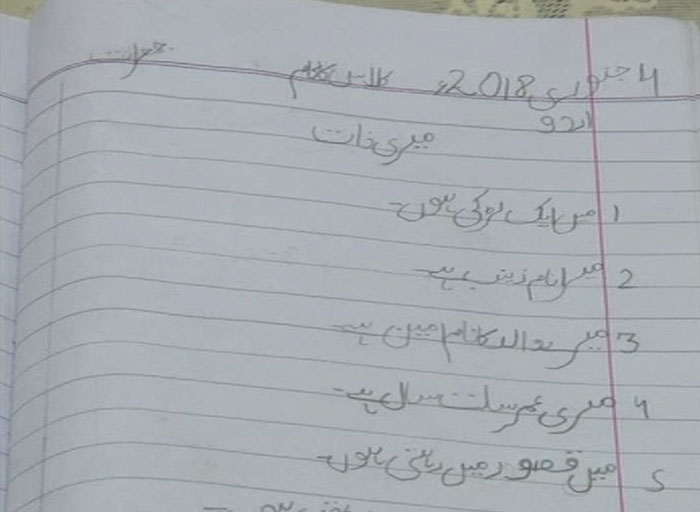 4 جنوری 2018ء کلاس کا کام جمعرات
اردو
میری ذات
1 میں ایک لڑکی ہوں۔
2 میرا نام زینب ہے۔
3 میرے والد کا نام امین ہے۔
4 میری عمر سات سال ہے۔
5 میں قصور میں رہتی ہوں۔